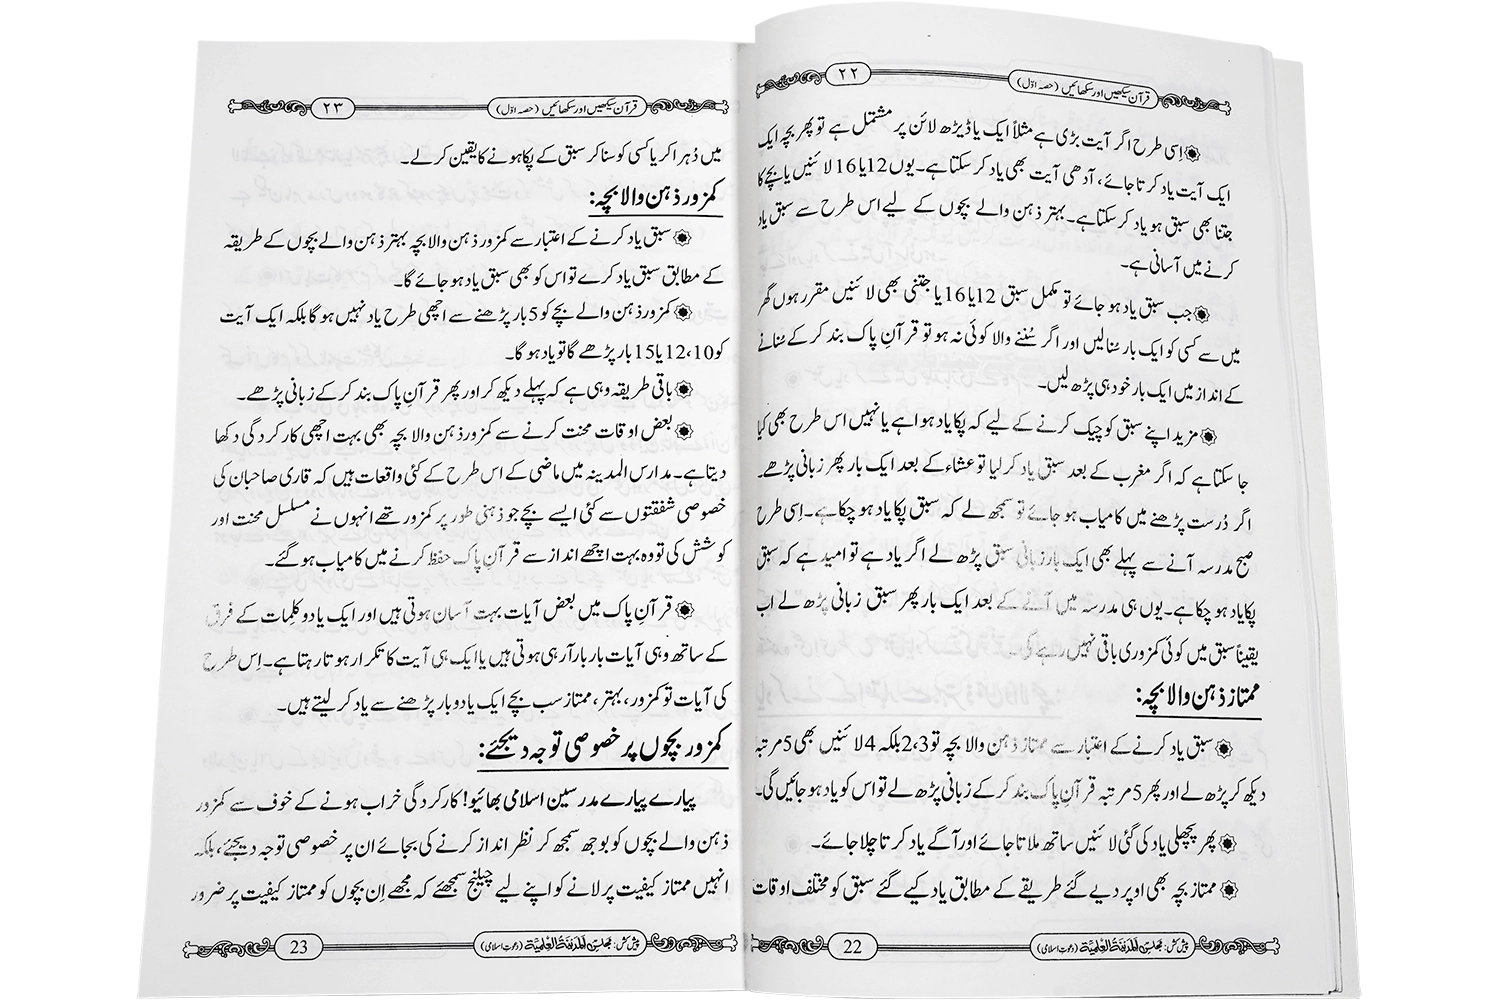 قرآن سیکھیں اور سکھائیں (حصہ اوّل)
۲۲
اِسی طرح اگر آیت بڑی ہے مثلاً ایک یا ڈیڑھ لائن پر مشتمل ہے تو پھر بچہ ایک
ایک آیت یاد کرتا جائے، آدھی آیت بھی یاد کر سکتا ہے۔ یوں 12 یا 16 لائنیں یا بچے کا
جتنا بھی سبق ہو یاد کر سکتا ہے۔ بہتر ذہن والے بچوں کے لیے اس طرح سے سبق یاد
کرنے میں آسانی ہے۔
جب سبق یاد ہو جائے تو مکمل سبق 12 یا 16 یا جتنی بھی لائنیں مقرر ہوں گھر
میں سے کسی کو ایک بار سُنا لیں اور اگر سُننے والا کوئی نہ ہو تو قرآنِ پاک بند کر کے سُنانے
کے انداز میں ایک بار خود ہی پڑھ لیں۔
مزید اپنے سبق کو چیک کرنے کے لیے کہ پکا یاد ہوا ہے یا نہیں اس طرح بھی کیا
جا سکتا ہے کہ اگر مغرب کے بعد سبق یاد کر لیا تو عشاء کے بعد ایک بار پھر زبانی پڑھے۔
اگر دُرست پڑھنے میں کامیاب ہو جائے تو سمجھ لے کہ سبق پکا یاد ہو چکا ہے۔ اِسی طرح
صبح مدرسہ آنے سے پہلے بھی ایک بار زبانی سبق پڑھ لے اگر یاد ہے تو امید ہے کہ سبق
پکا یاد ہو چکا ہے۔ یوں ہی مدرسہ میں آنے کے بعد ایک بار پھر سبق زبانی پڑھ لے اب
یقیناً سبق میں کوئی کمزوری باقی نہیں رہے گی۔
ممتاز ذہن والا بچہ:
سبق یاد کرنے کے اعتبار سے ممتاز ذہن والا بچہ تو 2،3 بلکہ 4 لائنیں بھی 5 مرتبہ
دیکھ کر پڑھ لے اور پھر 5 مرتبہ قرآنِ پاک بند کر کے زبانی پڑھ لے تو اس کو یاد ہو جائیں گی۔
پھر پچھلی یاد کی گئی لائنیں ساتھ ملاتا جائے اور آگے یاد کرتا چلا جائے۔
ممتاز بچہ بھی اوپر دیے گئے طریقے کے مطابق یاد کیے گئے سبق کو مختلف اوقات
پیش کش: مجلس اَلْمَدِیْنَۃُ الْعِلْمِیَّۃ (دعوتِ اسلامی)
22
قرآن سیکھیں اور سکھائیں (حصہ اوّل)
۲۳
میں دُہرا کر یا کسی کو سنا کر سبق کے پکا ہونے کا یقین کر لے۔
کمزور ذہن والا بچہ:
سبق یاد کرنے کے اعتبار سے کمزور ذہن والا بچہ بہتر ذہن والے بچوں کے طریقہ
کے مطابق سبق یاد کرے تو اس کو بھی سبق یاد ہو جائے گا۔
کمزور ذہن والے بچے کو 5 بار پڑھنے سے اچھی طرح یاد نہیں ہو گا بلکہ ایک آیت
کو 10، 12 یا 15 بار پڑھے گا تو یاد ہو گا۔
باقی طریقہ وہی ہے کہ پہلے دیکھ کر اور پھر قرآنِ پاک بند کر کے زبانی پڑھے۔
بعض اوقات محنت کرنے سے کمزور ذہن والا بچہ بھی بہت اچھی کارکردگی دکھا
دیتا ہے۔ مدارس المدینہ میں ماضی کے اس طرح کے کئی واقعات ہیں کہ قاری صاحبان کی
خصوصی شفقتوں سے کئی ایسے بچے جو ذہنی طور پر کمزور تھے انہوں نے مسلسل محنت اور
کوشش کی تو وہ بہت اچھے انداز سے قرآنِ پاک حفظ کرنے میں کامیاب ہو گئے۔
قرآنِ پاک میں بعض آیات بہت آسان ہوتی ہیں اور ایک یا دو کلِمات کے فرق
کے ساتھ وہی آیات بار بار آ رہی ہوتی ہیں یا ایک ہی آیت کا تکرار ہوتا رہتا ہے۔ اِس طرح
کی آیات تو کمزور، بہتر، ممتاز سب بچے ایک یا دو بار پڑھنے سے یاد کر لیتے ہیں۔
کمزور بچوں پر خصوصی توجہ دیجئے:
پیارے پیارے مدرسین اسلامی بھائیو! کارکردگی خراب ہونے کے خوف سے کمزور
ذہن والے بچوں کو بوجھ سمجھ کر نظر انداز کرنے کی بجائے ان پر خصوصی توجہ دیجئے، بلکہ
انہیں ممتاز کیفیت پر لانے کو اپنے لیے چیلنج سمجھئے کہ مجھے اِن بچوں کو ممتاز کیفیت پر ضرور
پیش کش: مجلس اَلْمَدِیْنَۃُ الْعِلْمِیَّۃ (دعوتِ اسلامی)
23